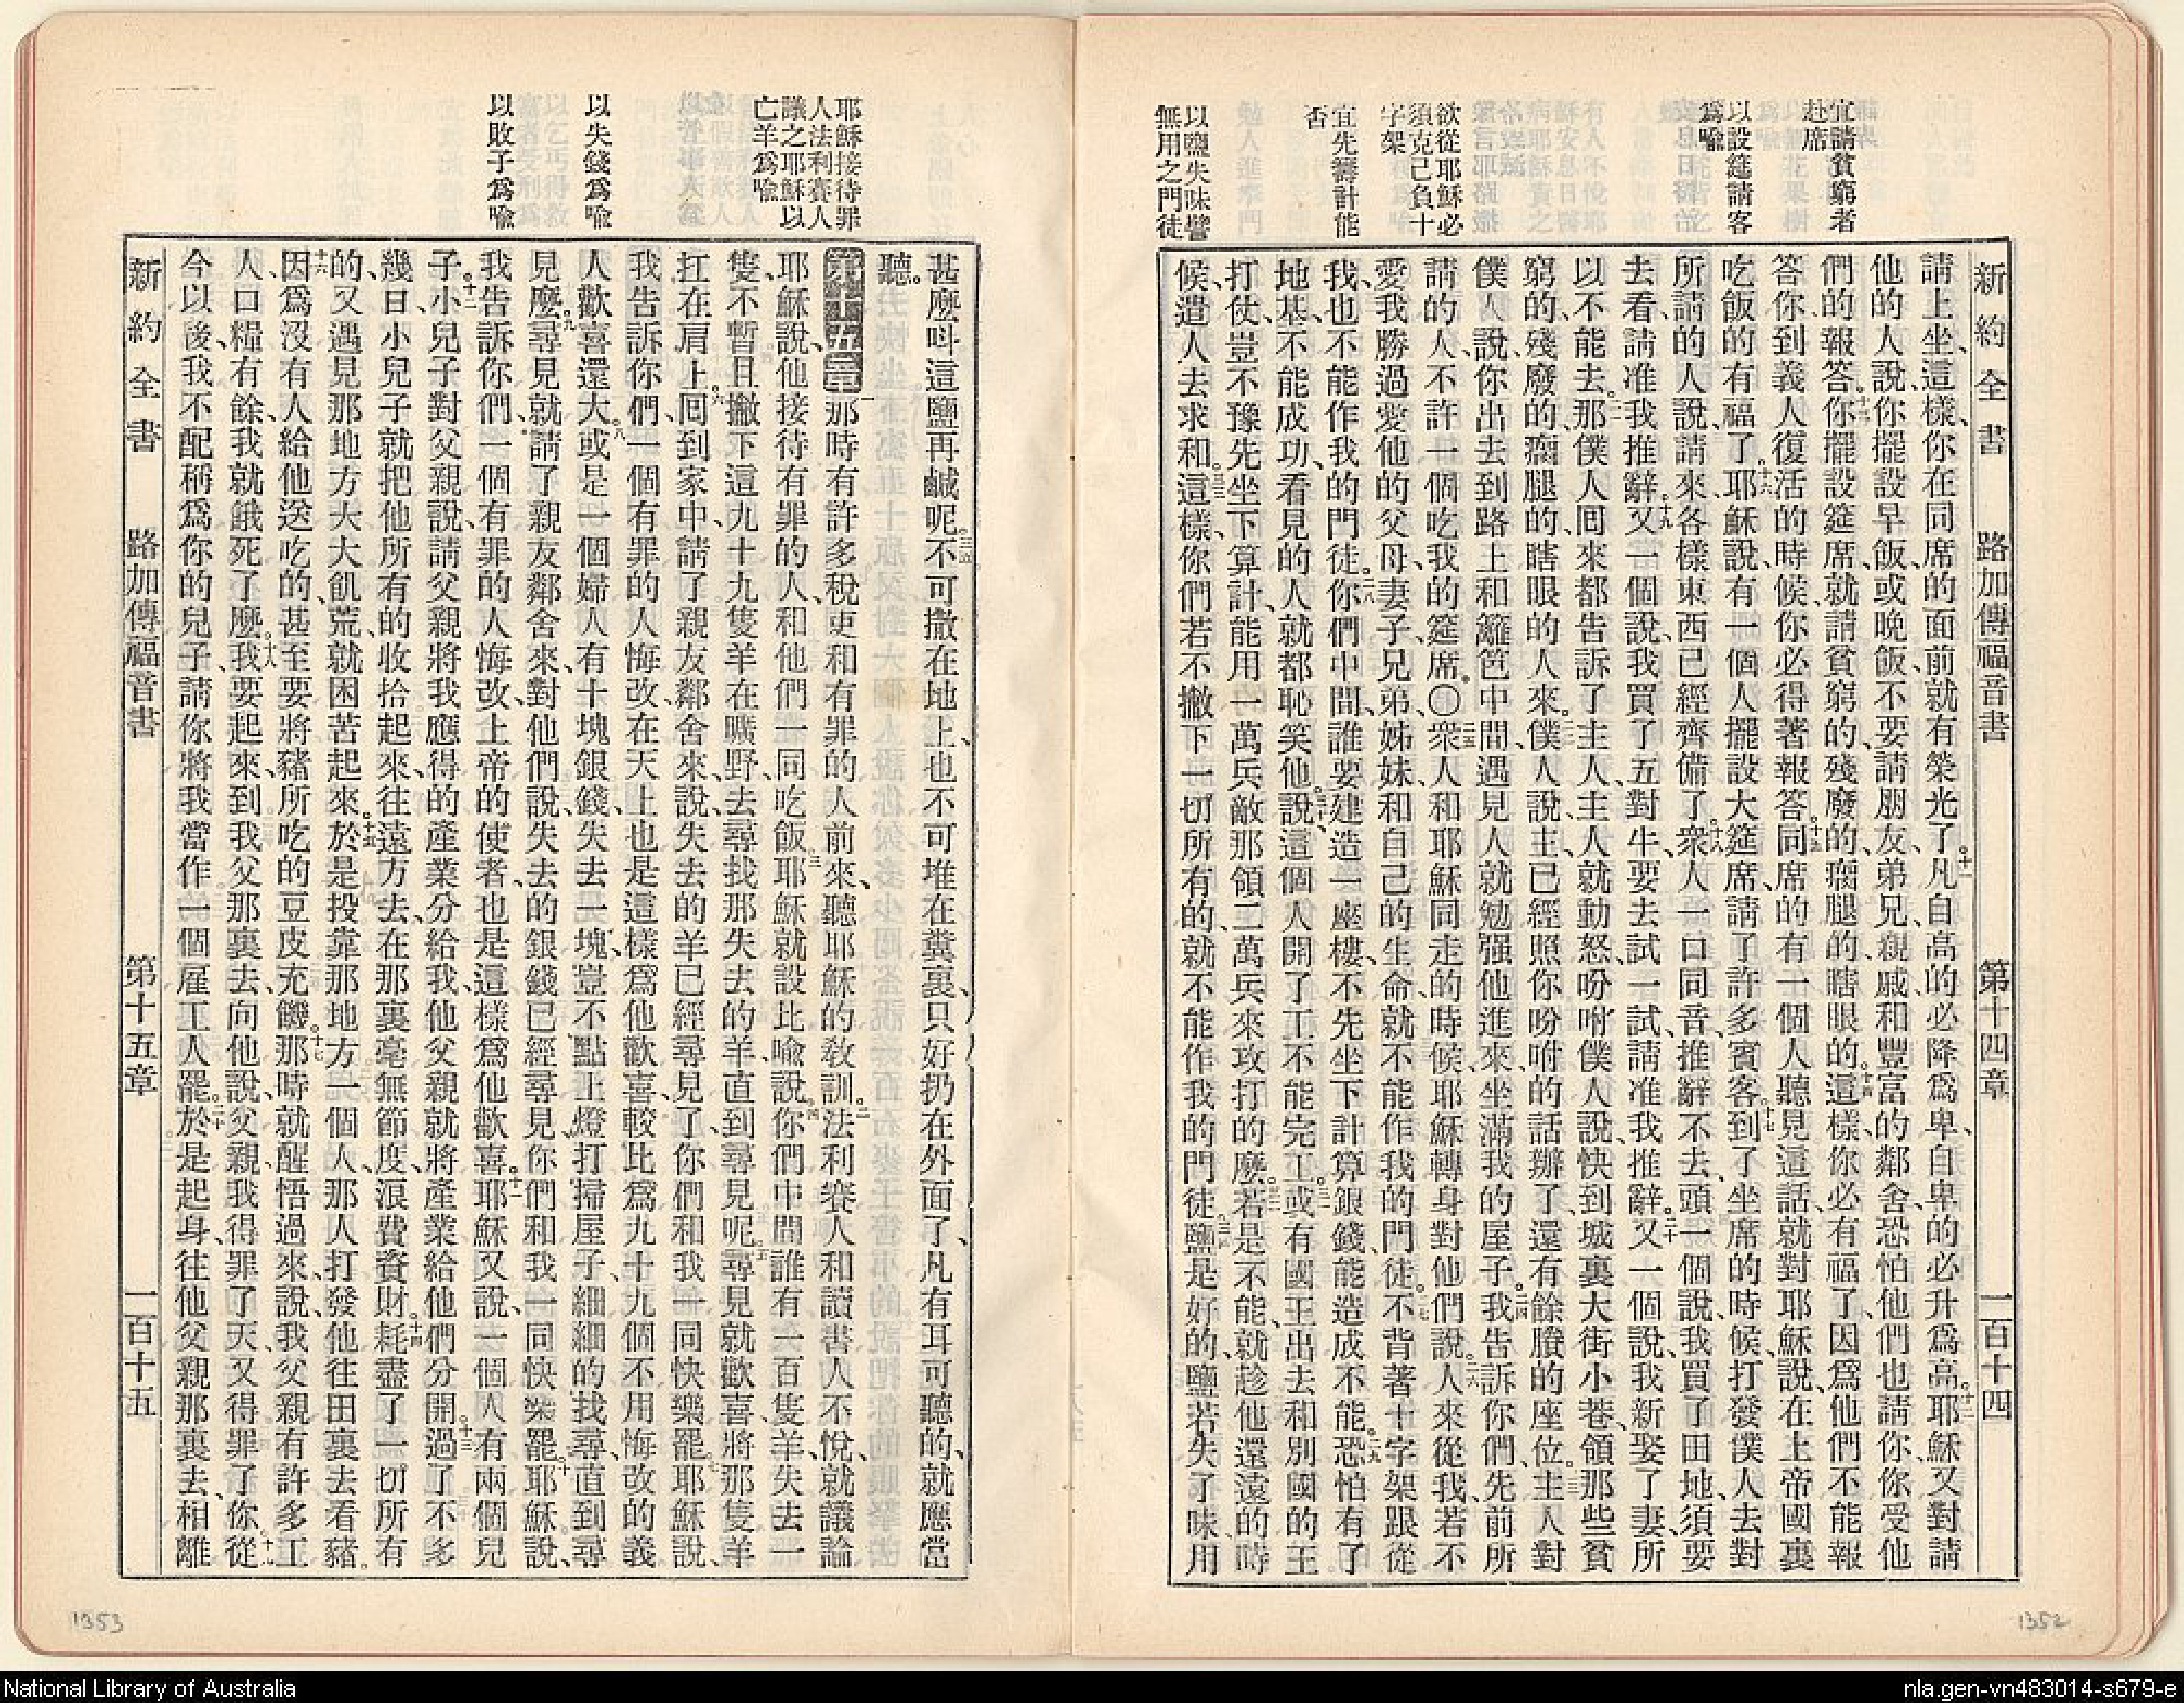 新約全書 路加傳福音書 第十四章 一百十四
宜請貧窮者
赴席
以設筵請客
爲喻
欲從耶穌必
須克己負十
字架
宜先籌計能
否
以鹽失味譬
無用之門徒
請上坐、這樣、你在同席的面前就有榮光了。十一凡自高的必降爲卑、自卑的必升爲高。十二耶穌又對請
他的人說、你擺設早飯或晚飯、不要請朋友、弟兄、親戚、和豐富的鄰舍、恐怕他們也請你、你受他
們的報答。十三你擺設筵席、就請貧窮的、殘廢的、瘸腿的、瞎眼的。十四這樣、你必有福了、因爲他們不能報
答你、到義人復活的時候、你必得著報答。十五同席的有一個人聽見這話、就對耶穌說、在上帝國裏
吃飯的有福了。十六耶穌說、有一個人擺設大筵席、請了許多賓客。十七到了坐席的時候、打發僕人去對
所請的人說、請來、各樣東西已經齊備了。十八衆人一口同音、推辭不去、頭一個說、我買了田地、須要
去看、請准我推辭。十九又一個說、我買了五對牛、要去試一試、請准我推辭。二十又一個說、我新娶了妻、所
以不能去。二一那僕人囘來、都告訴了主人、主人就動怒、吩咐僕人說、快到城裏大街小巷、領那些貧
窮的、殘廢的、瘸腿的、瞎眼的人來。二二僕人說、主、已經照你吩咐的話辦了、還有餘賸的座位。二三主人對
僕人說、你出去到路上和籬笆中間、遇見人就勉强他進來、坐滿我的屋子。二四我告訴你們、先前所
請的人、不許一個吃我的筵席。〇二五衆人和耶穌同走的時候、耶穌轉身對他們說。二六人來從我、若不
愛我勝過愛他的父母、妻子、兄弟、姊妹、和自己的生命、就不能作我的門徒。二七不背著十字架跟從
我、也不能作我的門徒。二八你們中間、誰要建造一座樓、不先坐下計算銀錢、能造成不能。二九恐怕有了
地基、不能成功、看見的人就都恥笑他。三十說、這個人開了工、不能完工。三一或有國王、出去和別國的王
打仗、豈不豫先坐下算計、能用一萬兵敵那領二萬兵來攻打的麼。三二若是不能、就趁他還遠的時
候、遣人去求和。三三這樣、你們若不撇下一切所有的、就不能作我的門徒。三四鹽是好的、鹽若失了味、用
耶穌接待罪
人法利賽人
議之耶穌以
亡羊爲喻
以失錢爲喻
以敗子爲喻
甚麼呌這鹽再鹹呢。三五不可撒在地上、也不可堆在糞裏、只好扔在外面了、凡有耳可聽的、就應當
聽。
第十五章 一那時有許多稅吏和有罪的人前來、聽耶穌的敎訓。二法利賽人和讀書人不悅、就議論
耶穌說、他接待有罪的人、和他們一同吃飯。三耶穌就設比喻說。四你們中間誰有一百隻羊、失去一
隻、不暫且撇下這九十九隻羊在曠野、去尋找那失去的羊、直到尋見呢。五尋見就歡喜、將那隻羊
扛在肩上。六囘到家中、請了親友鄰舍來、說、失去的羊已經尋見了、你們和我一同快樂罷。七耶穌說、
我告訴你們、一個有罪的人悔改、在天上也是這樣爲他歡喜、較比爲九十九個不用悔改的義
人歡喜還大。八或是一個婦人有十塊銀錢、失去一塊、豈不點上燈、打掃屋子、細細的找尋、直到尋
見麼。九尋見就請了親友鄰舍來、對他們說、失去的銀錢已經尋見、你們和我一同快樂罷。十耶穌說、
我告訴你們、一個有罪的人悔改、上帝的使者、也是這樣爲他歡喜。十一耶穌又說、一個人有兩個兒
子。十二小兒子對父親說、請父親將我應得的產業分給我、他父親就將產業給他們分開。十三過了不多
幾日、小兒子就把他所有的收拾起來、往遠方去、在那裏毫無節度、浪費資財。十四耗盡了一切所有
的、又遇見那地方大大飢荒、就困苦起來。十五於是投靠那地方一個人、那人打發他往田裏去看豬。
十六因爲沒有人給他送吃的、甚至要將豬所吃的豆皮充饑。十七那時就醒悟過來、說、我父親有許多工
人、口糧有餘、我就餓死了麼。十八我要起來、到我父那裏去、向他說、父親、我得罪了天、又得罪了你。十九從
今以後、我不配稱爲你的兒子、請你將我當作一個雇工人罷。二十於是起身、往他父親那裏去、相離
新約全書 路加傳福音書 第十五章 一百十五
1353
1352
National Library of Australia
nla.gen-vn483014-s679-e